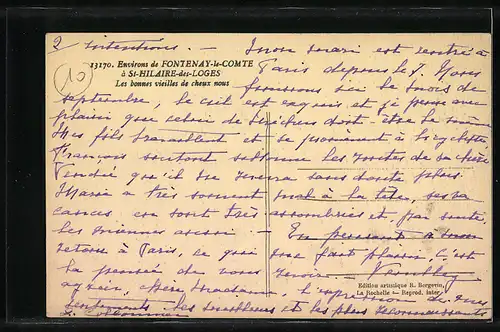 2 intentions. — Mon mari est rentré à
13170. Environs de FONTENAY-le-COMTE
à St-HILAIRE-des-LOGES
Les bonnes vieilles de cheux nous
10
Paris depuis le 7. Nous
finissons ici le mois de
septembre, le ciel est exquis et je pense avec
plaisir que celui de doit être le même
Mes fils travaillent et se promènent à bicyclette
François surtout sillonne les routes de sa chère
Vendée qu'il ne reverra sans doute plus
Marie a très souvent mal à la tête, ses va
cances en sont très assombries et, par suite,
les miennes aussi — En pensant à mon
retour à Paris, ce qui me fait plaisir, c'est
la pensée de vous revoir. Veuillez
Edition artistique R. Bergevin,
La Rochelle — Reprod. inter.
agréer, chère Madame, l'expression de mes
sentiments les meilleurs et les plus reconnaissants